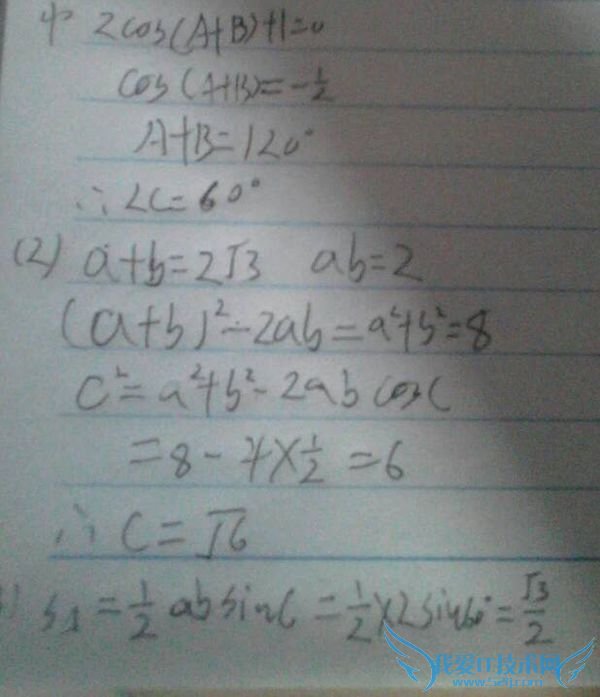 2cos(A+B)+1=0
cos(A+B)=-1/2
A+B=120°
∴∠C=60°
(2) a+b=2√3 ab=2
(a+b)²-2ab=a²+b²=8
c²=a²+b²-2ab cosC
=8-4×1/2=6
∴ C=√6
S△=1/2 ab sinC=1/2×2sin60°=√3/2
我爱IT技术网